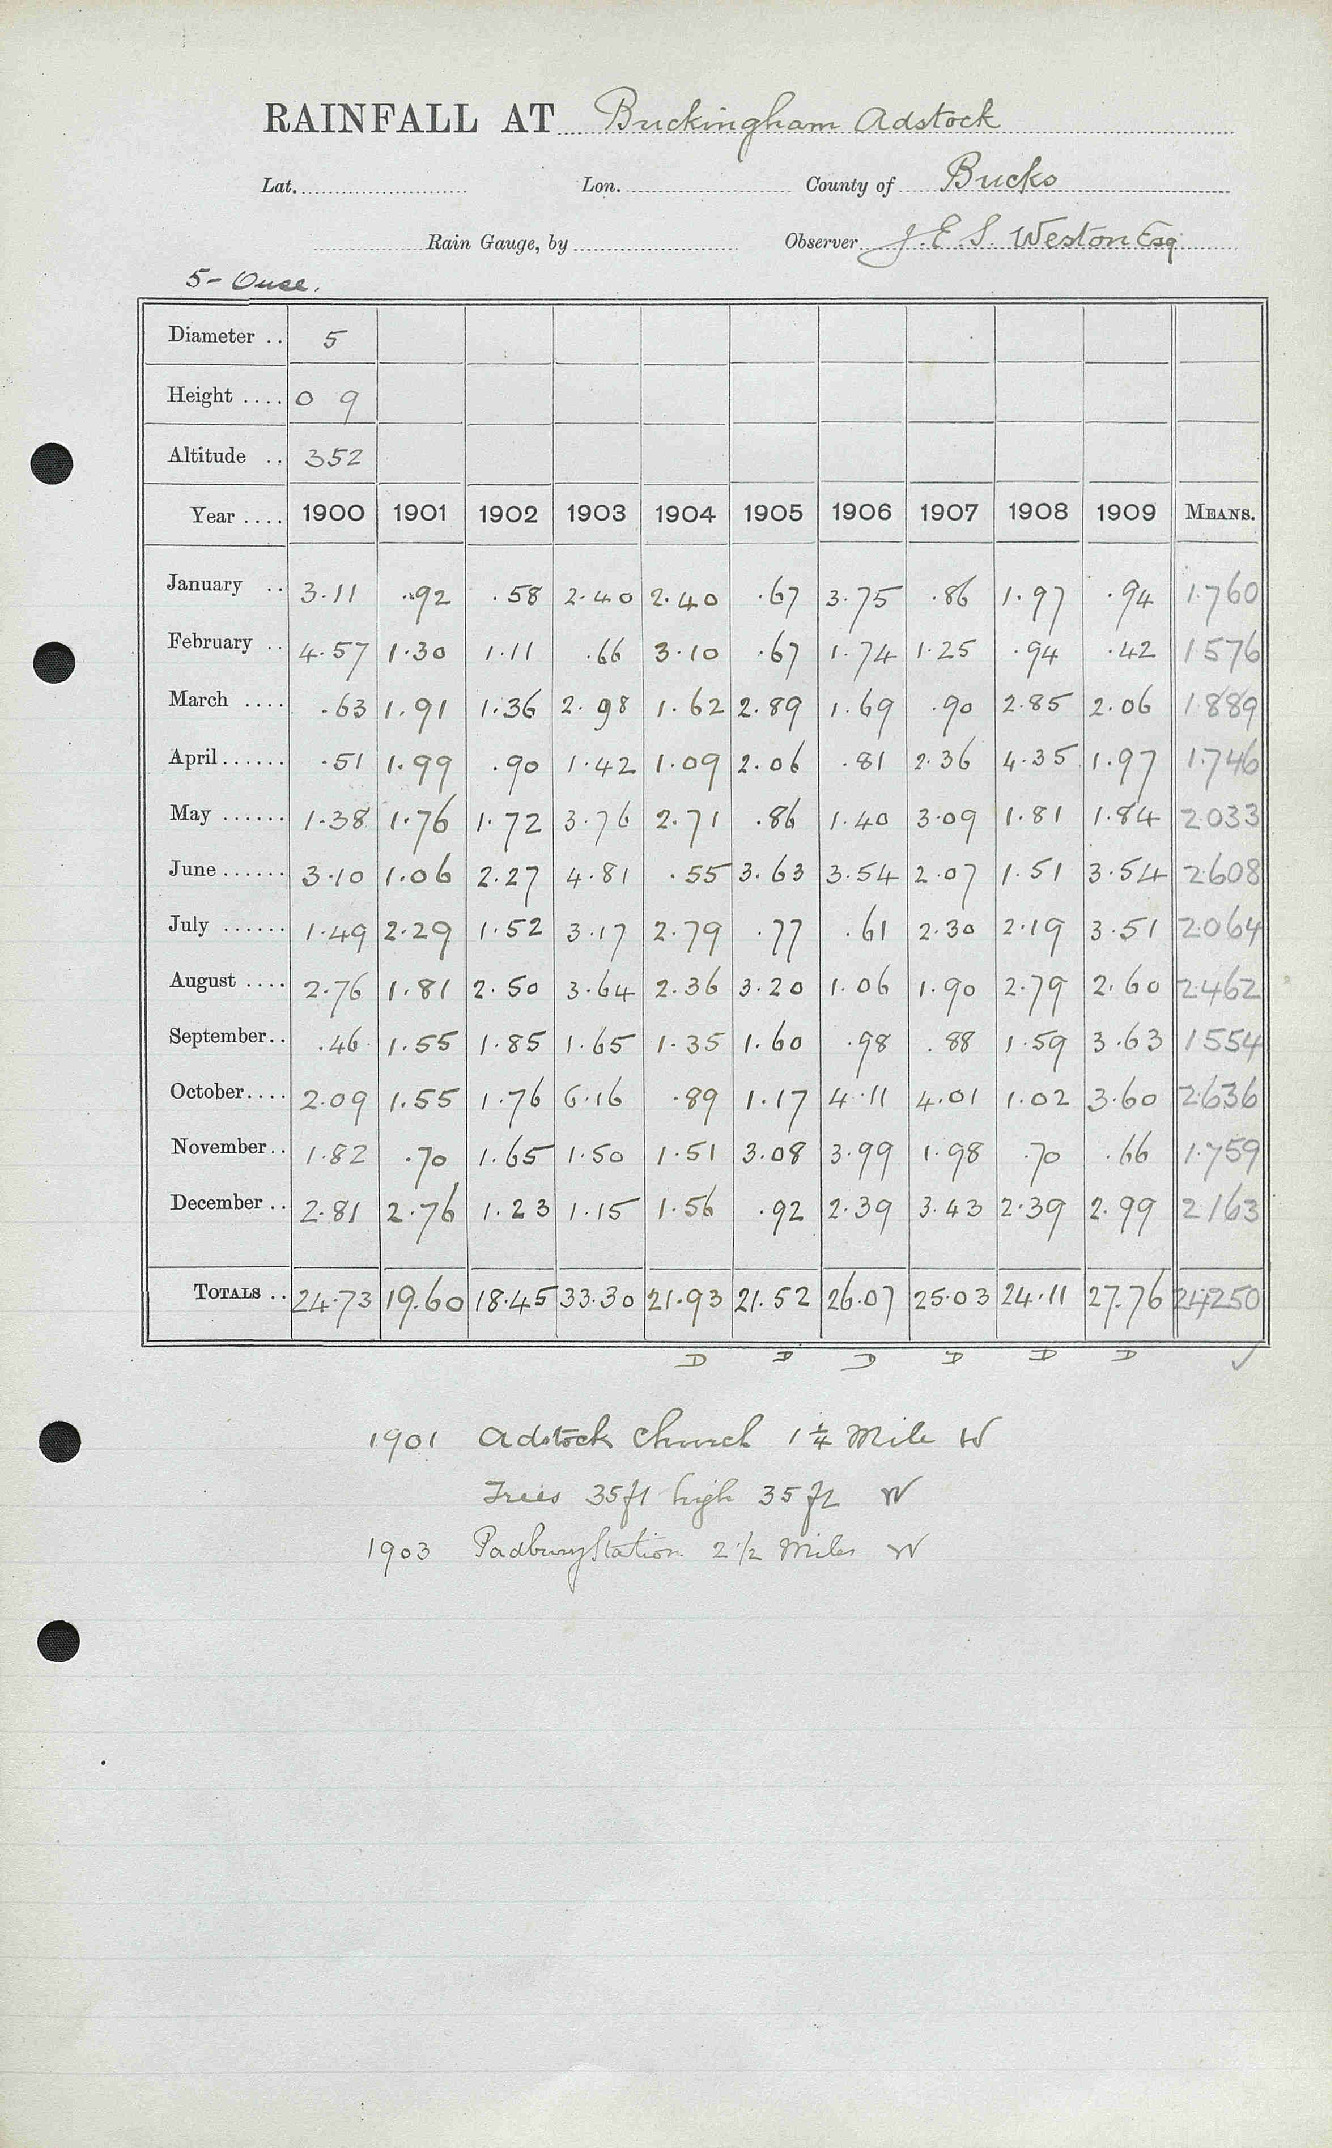 RAINFALL AT Buckingham Adstock
Lat. Lon. County of Bucks
Rain Gauge, by Observer J. E. S. Weston Esq
5- Ouse.
Diameter .. 5
Height .... 0 9
Altitude .. 352
Year .... 1900 1901 1902 1903 1904 1905 1906 1907 1908 1909 MEANS.
January .. 3.11 .92 .58 2.40 2.40 .67 3.75 .86 1.97 .94 1.760
February .. 4.57 1.30 1.11 .66 3.10 .67 1.74 1.25 .94 .42 1576
March .... .63 1.91 1.36 2.98 1.62 2.89 1.69 .90 2.85 2.06 1.889
April...... .51 1.99 .90 1.42 1.09 2.06 .81 2.36 4.35 1.97 1.746
May ...... 1.38 1.76 1.72 3.76 2.71 .86 1.40 3.09 1.81 1.84 2033
June ...... 3.10 1.06 2.27 4.81 .55 3.63 3.54 2.07 1.51 3.54 2.608
July ...... 1.49 2.29 1.52 3.17 2.79 .77 .61 2.30 2.19 3.51 2.064
August .... 2.76 1.81 2.50 3.64 2.36 3.20 1.06 1.90 2.79 2.60 2.462
September.. .46 1.55 1.85 1.65 1.35 1.60 .98 .88 1.59 3.63 1554
October.... 2.09 1.55 1.76 6.16 .89 1.17 4.11 4.01 1.02 3.60 2.636
November.. 1.82 .70 1.65 1.50 1.51 3.08 3.99 1.98 .70 .66 1.759
December .. 2.81 2.76 1.23 1.15 1.56 .92 2.39 3.43 2.39 2.99 2163
TOTALS .. 24.73 19.60 18.45 33.30 21.93 21.52 26.07 25.03 24.11 27.76 24250
D D D D D D ✓
1901 Adstock Church 1 1/4 Mile W
Trees 35ft high 35 ft W
1903 Padbury Station 2 1/2 Miles W